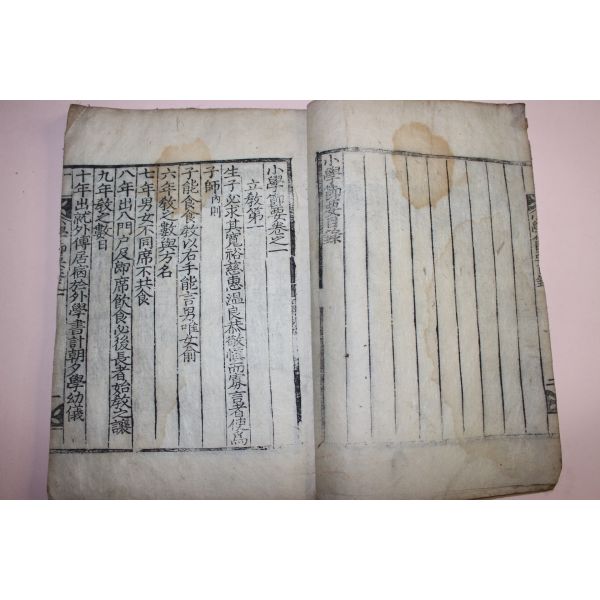 小學節要目錄
小學節要卷之一
立敎第一
生子必求其寬裕慈惠溫良恭敬愼而寡言者使爲
子師內則
子能食食敎以右手能言男唯女兪
六年敎之數與方名
七年男女不同席不共食
八年出入門戶及卽席飮食必後長者始敎之讓
九年敎之數日
十年出就外傅居宿於外學書計朝夕學幼儀